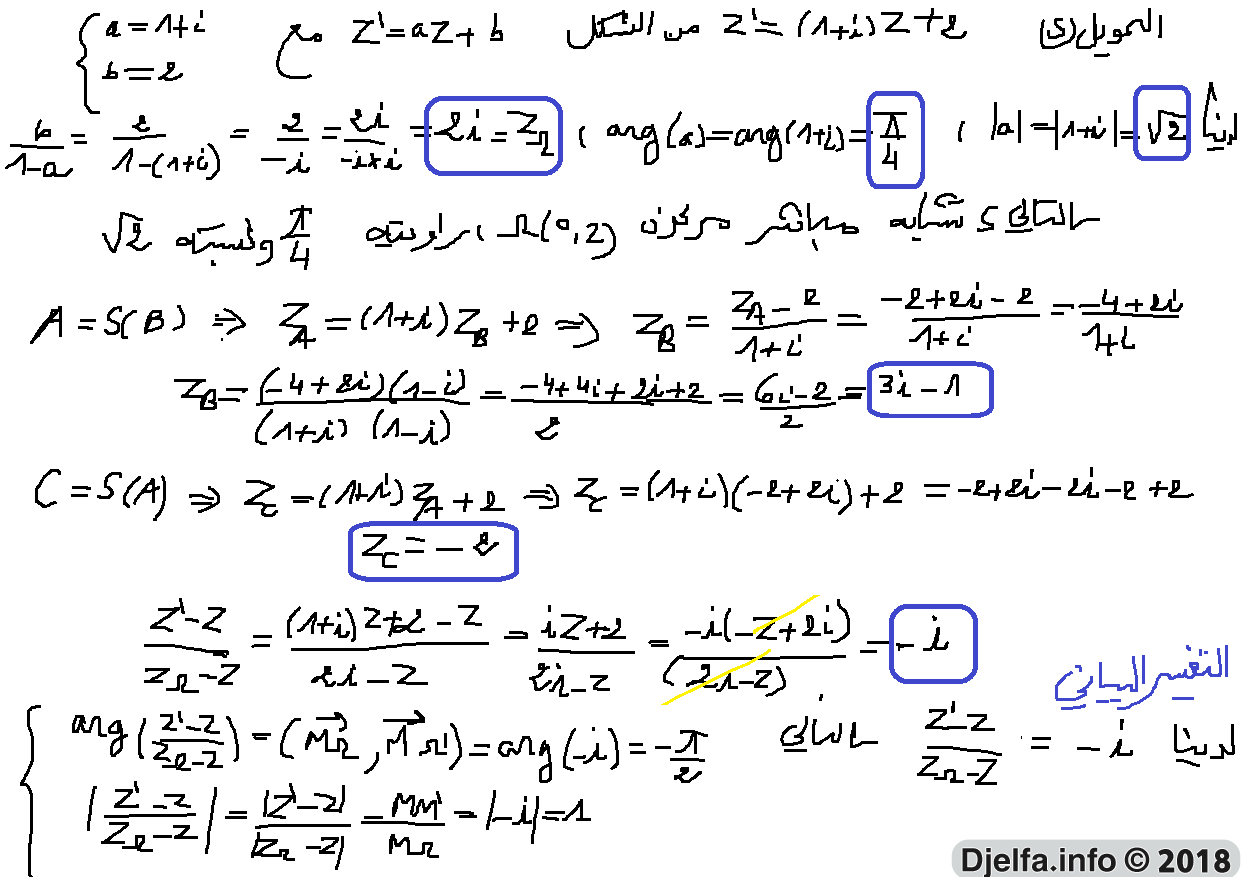 التحويل (S) z' = (1+i)z + 2 من الشكل z' = az + b مع { a = 1+i
b = 2
لدينا |a| = |1+i| = √2 ، arg(a) = arg(1+i) = π/4 ، b/(1-a) = 2/(1-(1+i)) = 2/-i = 2i/(-i×i) = 2i = z_Ω
بالتالي S تشابه مباشر مركزه Ω(0,2) ، زاويته π/4 ونسبته √2
A = S(B) ⇒ z_A = (1+i)z_B + 2 ⇒ z_B = (z_A - 2)/(1+i) = (-2+2i-2)/(1+i) = (-4+2i)/(1+i)
z_B = (-4+2i)(1-i)/((1+i)(1-i)) = (-4+4i+2i+2)/2 = (6i-2)/2 = 3i - 1
C = S(A) ⇒ z_C = (1+i)z_A + 2 ⇒ z_C = (1+i)(-2+2i)+2 = -2+2i-2i-2+2
z_C = -2
(z'-z)/(z_Ω-z) = ((1+i)z+2-z)/(2i-z) = (iz+2)/(2i-z) = -i(-z+2i)/(2i-z) = -i
التفسير البياني
لدينا (z'-z)/(z_Ω-z) = -i بالتالي
{ arg((z'-z)/(z_Ω-z)) = (MΩ, MΩ') = arg(-i) = -π/2
|(z'-z)/(z_Ω-z)| = |z'-z|/|z_Ω-z| = MM'/MΩ = |-i| = 1
Djelfa.info © 2018